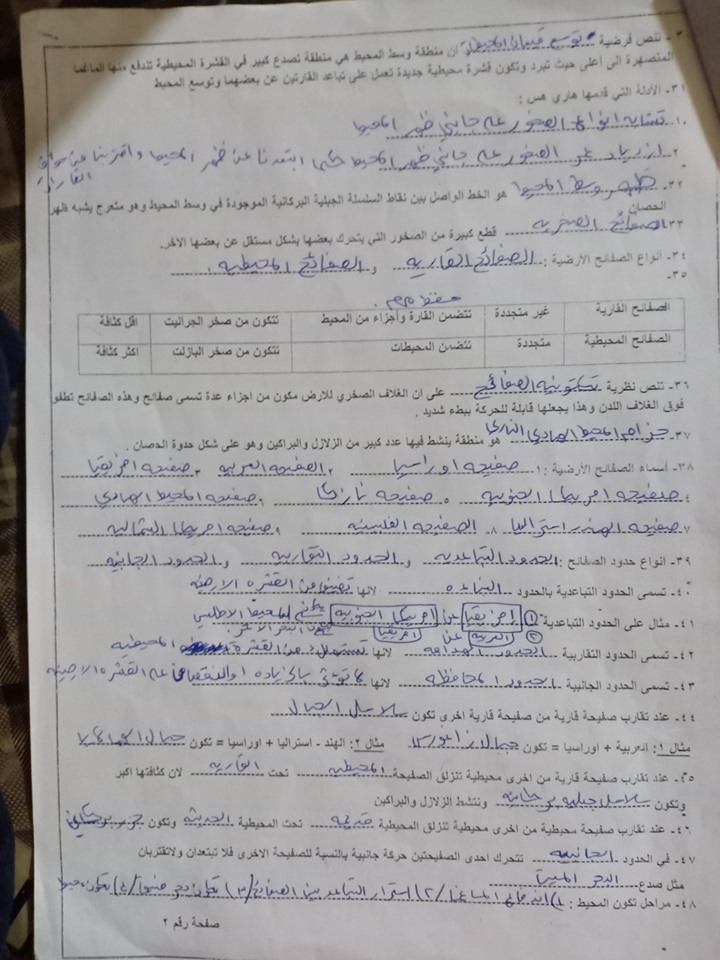 ٣٠- تنص فرضية توسع قيعان المحيطات ان منطقة وسط المحيط هي منطقة تصدع كبير في القشرة المحيطية تندفع منها الماغما
المنصهرة الى أعلى حيث تبرد وتكون قشرة محيطية جديدة تعمل على تباعد القارتين عن بعضهما وتوسع المحيط
٣١- الأدلة التي قدمها هاري هس :
١. تشابه انواع الصخور على جانبي ظهر المحيط
٢. ازدياد عمر الصخور على جانبي ظهر المحيط كلما ابتعدنا عن ظهر المحيط واقتربنا من حواف
القارات
٣٢- ظهر وسط المحيط هو الخط الواصل بين نقاط السلسلة الجبلية البركانية الموجودة في وسط المحيط وهو متعرج يشبه ظهر
الحصان
٣٣- الصفائح الصخرية قطع كبيرة من الصخور التي يتحرك بعضها بشكل مستقل عن بعضها الآخر.
٣٤- أنواع الصفائح الأرضية : الصفائح القارية و الصفائح المحيطية .
٣٥-
حفظ مهم .
الصفائح القارية غير متجددة تتضمن القارة وأجزاء من المحيط تتكون من صخر الجرانيت اقل كثافة
الصفائح المحيطية متجددة تتضمن المحيطات تتكون من صخر البازلت اكثر كثافة
٣٦- تنص نظرية تكتونية الصفائح على ان الغلاف الصخري للارض مكون من اجزاء عدة تسمى صفائح وهذه الصفائح تطفو
فوق الغلاف اللدن وهذا يجعلها قابلة للحركة ببطء شديد .
٣٧- حزام المحيط الهادي الناري هو منطقة ينشط فيها عدد كبير من الزلازل والبراكين وهو على شكل حدوة الحصان .
٣٨- أسماء الصفائح الأرضية : ١. صفيحة اوراسيا ٢. الصفيحة العربية ٣. صفيحة افريقيا
٤. صفيحة امريكا الجنوبية ٥. صفيحة نازكا ٦. صفيحة المحيط الهادي
٧. صفيحة الهند - استراليا ٨. الصفيحة الفلبينية ٩. صفيحة امريكا الشمالية
٣٩- انواع حدود الصفائح : الحدود التباعدية و الحدود التقاربية و الحدود الجانبية
٤٠- تسمى الحدود التباعدية بالحدود البناءة لانها تضيف من القشرة الارضية
٤١- مثال على الحدود التباعدية: ① افريقيا عن امريكا الجنوبية المحيط الاطلسي
② العربية عن افريقيا البحر الاحمر .
٤٢- تسمى الحدود التقاربية الحدود الهدامة لانها تستهلك من القشرة المحيطية
٤٣- تسمى الحدود الجانبية الحدود المحافظة لانها لا تؤثر بالزيادة او النقصان على القشرة الارضية
٤٤- عند تقارب صفيحة قارية من صفيحة قارية اخرى تكون سلاسل الجبال
مثال ١: العربية + اوراسيا = تكون جبال زاغروس مثال ٢: الهند - استراليا + اوراسيا = تكون جبال الهملايا
٤٥- عند تقارب صفيحة قارية من اخرى محيطية تنزلق الصفيحة المحيطية تحت القارية لان كثافتها اكبر
وتكون سلاسل جبلية بركانية وتنشط الزلازل والبراكين
٤٦- عند تقارب صفيحة محيطية من اخرى محيطية تنزلق المحيطية قديمة تحت المحيطية الحديثة وتكون جزر بركانية
٤٧- في الحدود الجانبية تتحرك احدى الصفيحتين حركة جانبية بالنسبة للصفيحة الاخرى فلا تبتعدان ولاتقتربان
مثل صدع البحر الميت
٤٨- مراحل تكون المحيط : ١) اندفاع الماغما / ٢) استمرار التباعد بين الصفائح / ٣) تكون بحر ضيق / ٤) تكون محيط
صفحة رقم ٢